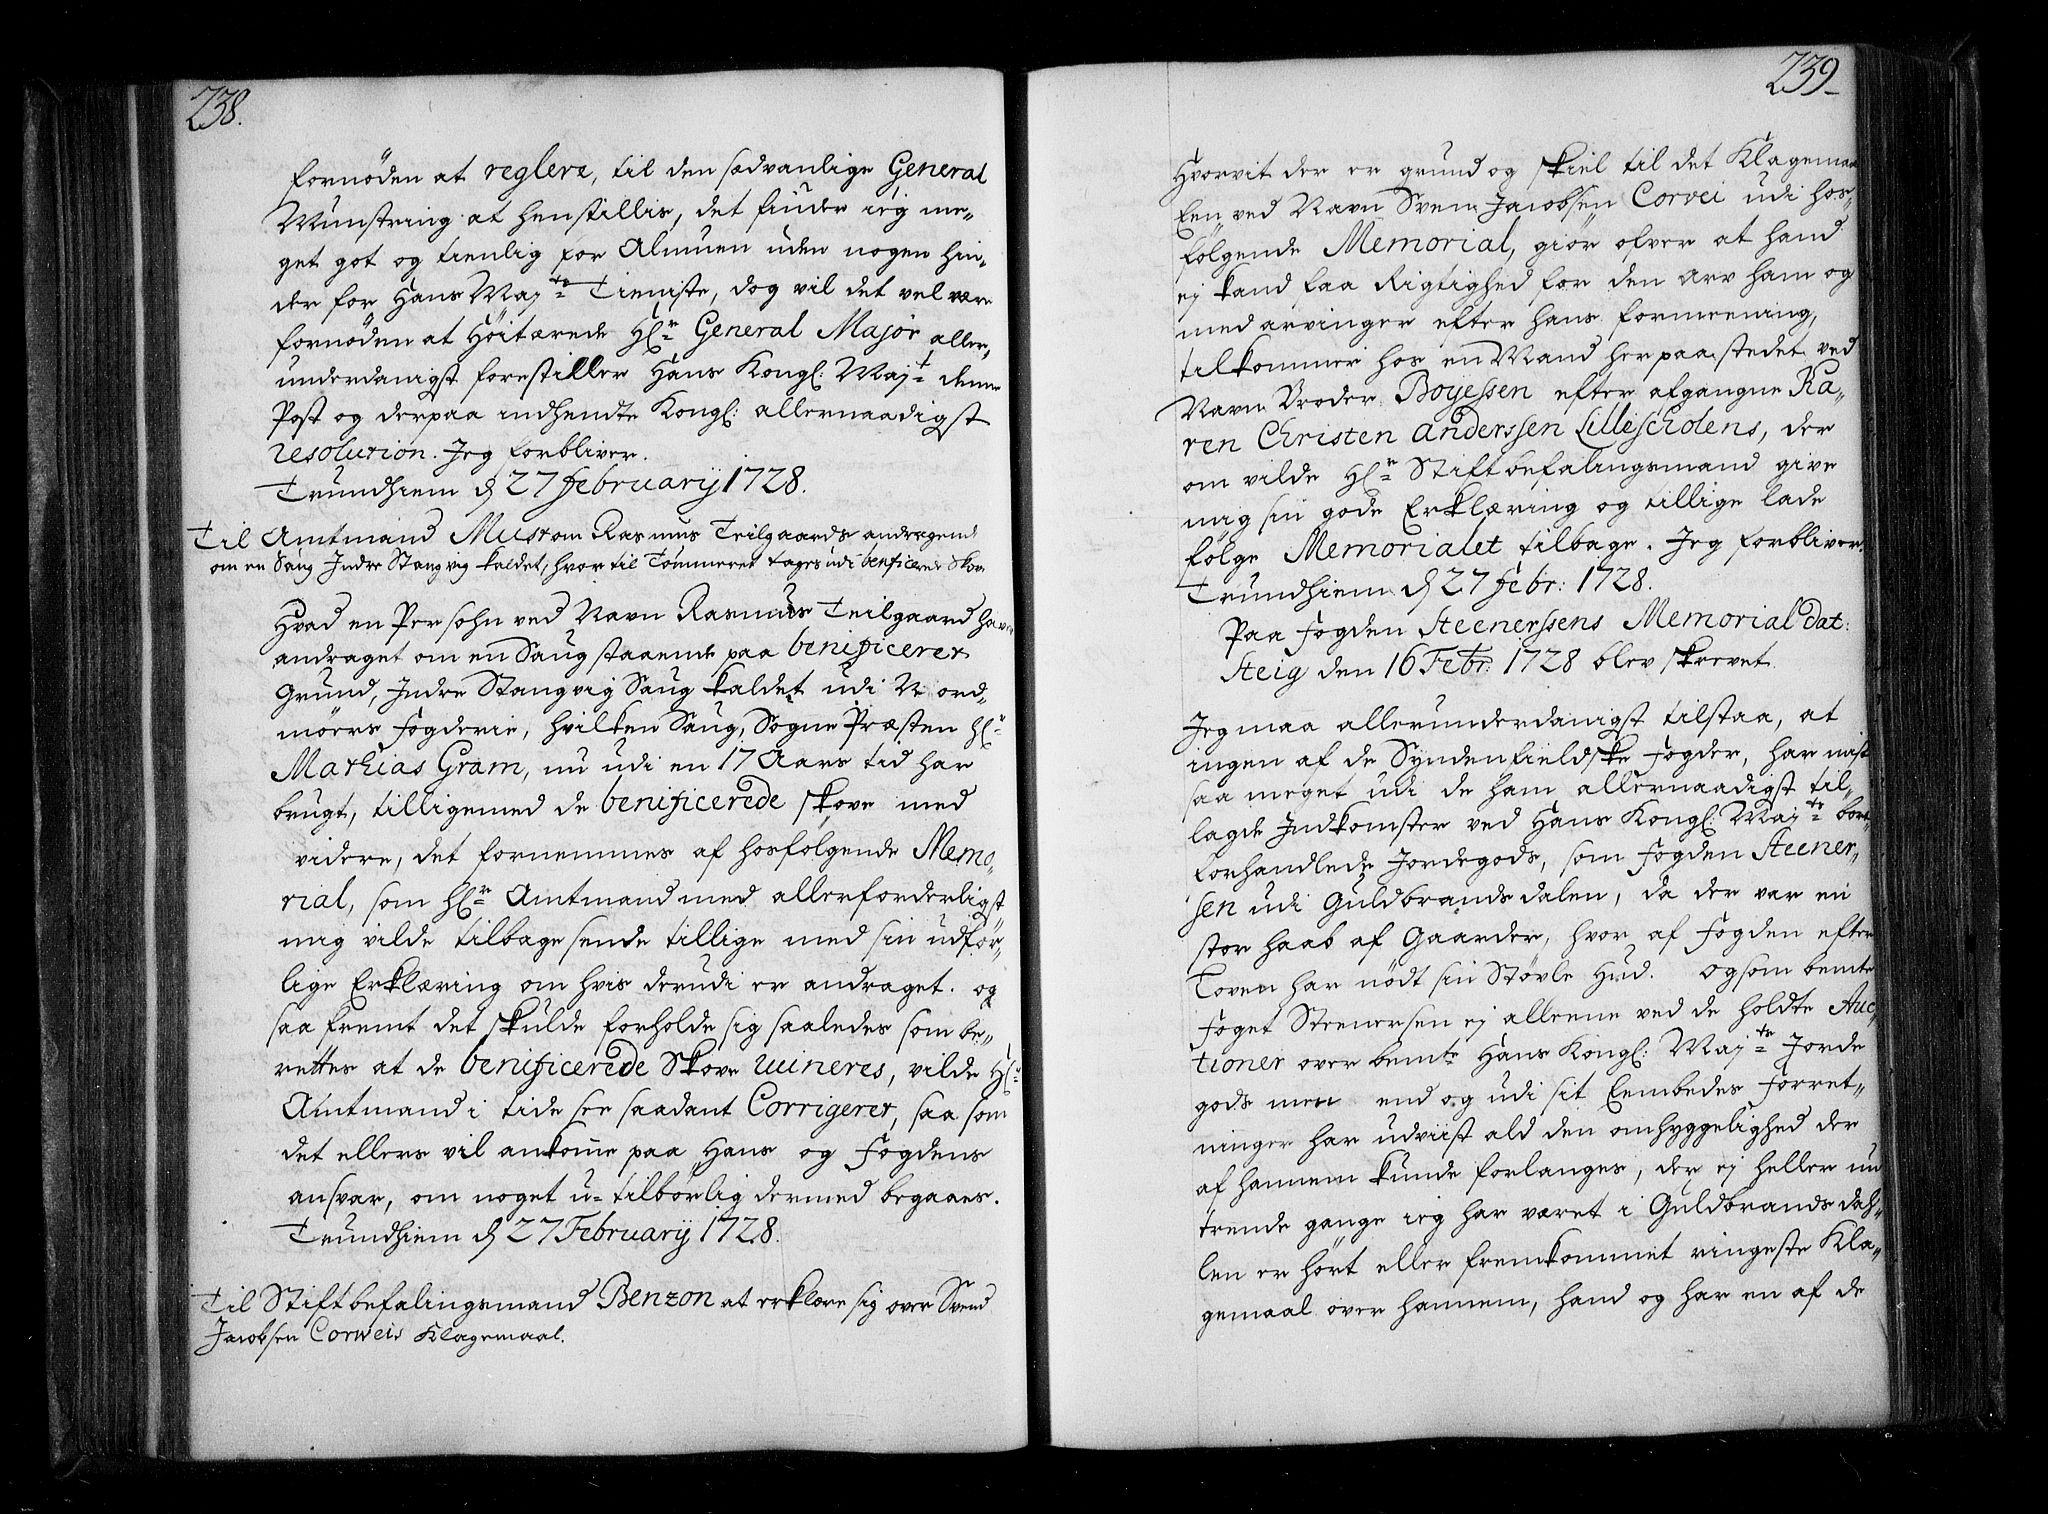 238.
fornöden at reglere, til den sædvanlige General
Munstring at henstillis, det finder ieg me-
get got og tienlig for Almuen uden nogen hin-
der for Hans Maj:ts Tieniste, dog vil det vel være
fornöden at Höitærede Hr: General Major aller-
underdanigst forestiller Hans Kongl: Maj:t denne
Post og derpaa indhendte Kongl: allernaadigst
resolution. Jeg forbliver.
Trundhiem d 27 februarij 1728.
Til Amtmand Must om Rasmus Teilgaards andragende
om en Saug Indre Stangvig kaldet, hvor til Tömmeret tages udi benificeret Skov
Hvad en Persohn ved Navn Rasmus Teilgaard haver
andraget om en Saug staaende paa benificeret
Grund, Indre Stangvig Saug kaldet udi Nord-
möers Fogderie, hvilken Saug, Sogne Præsten Hr:
Mathias Gram, nu udi en 17 Aars tid har
brugt, tilligemed de benificerede skove med
videre, det fornemmes af hosfölgende Memo-
rial, som Hr: Amtmand med allerforderligst
mig vilde tilbage sende tillige med sin udför-
lige Erklæring om hvis derudi er andraget. og
saa fremt det skulde forholde sig saaledes som be-
rettes at de benificerede Skove ruineres, vilde Hr:
Amtmand i tide see saadant Corrigeret, saa som
det ellers vil ankome paa Hans og Fogdens
ansvar, om noget u-tilbörlig dermed begaaes.
Trundhiem d 27 Februarij 1728.
Til Stiftbefalingsmand Benzon at erklære sig over Svend
Jacobsen Corweis Klagemaal.
239
Hvorvit der er grund og skiel til det Klagemaal
Een ved Navn Sven Jacobsen Corvei udi hos-
fölgende Memorial, giör ofver at hand
ej kand faa Rigtighed for den arv ham og
med arvinger efter hans formeening,
tilkommer hos en Mand her paa stedet ved
Navn Broder Boyessen efter afgangne Ka-
ren Christen Anderssen Lillescholens, der
om vilde Hr: Stiftbefalingsmand give
mig sin gode Erklæring og tillige lade
fölge Memorialet tilbage. Jeg forbliver.
Trundhiem d 27 febr: 1728.
Paa fogden Steenerssens Memorial dat:
Steig den 16 Febr: 1728 blev skrevet.
Jeg maa allerunderdanigst tilstaa, at
ingen af de Syndenfieldske fogder, har mist
saa meget udi de ham allernaadigst til-
lagde Indkomster ved Hans Kongl: Maj:ts bort-
forhandlede Jordegods, som fogden Steener-
sen udi Guldbrandsdalen, da der var en
stor haab af Gaarder, hvor af fogden efter
Loven har nödt sin Stövle Hud. Og som bemte
foget Steenersen ej alleene ved de holdte Auc-
tioner over bemte Hans Kongl: Maj:ts Jorde
gods men end og udi sit Eembedes forret-
ninger har udviist ald den omhyggelighed der
af hannem kunde forlanges, der ej heller nu
trende gange ieg har været i Guldbrands dah-
len er hört eller fremkommet ringeste Kla-
gemaal over hannem, hand og har en af de